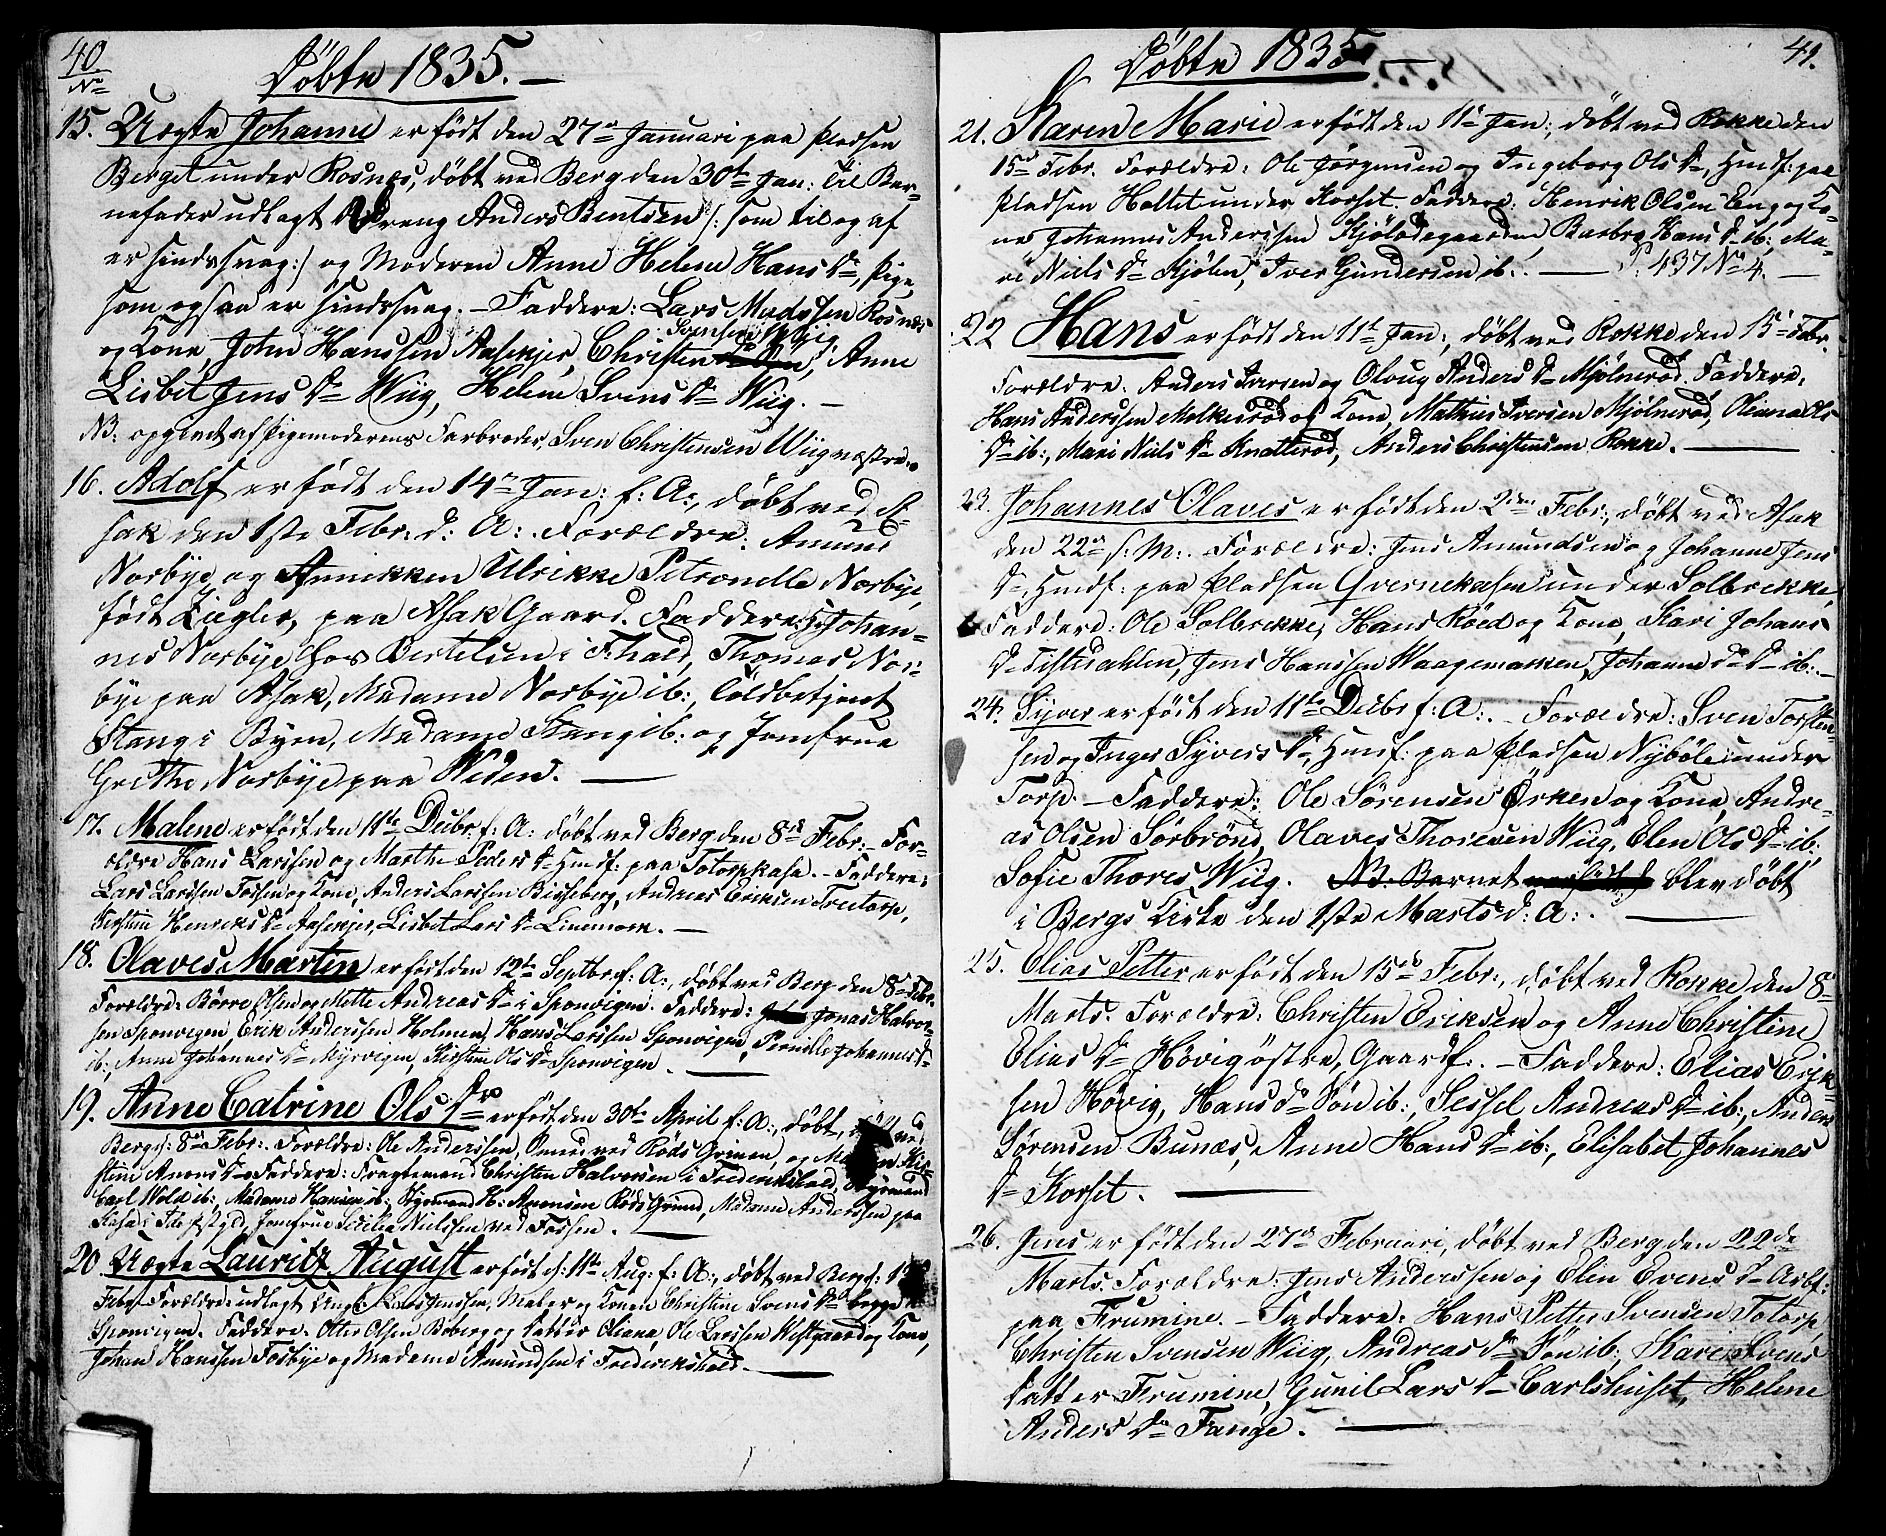 40
No
Döbte 1835. —
15. Uægte Johanne er født den 27de Januari paa Pladsen
Berget under Rosnæs, døbt ved Berg den 30te Jan: Til Bar-
nefader udlagt Dreng Anders Bentsen /: som til og af
er sindssvag :/ og Moderen Anne Helene Hans Dr, Pige,
som ogsaa er sindssvag. – Faddere: Lars Madssen Rosnæs
og Kone, John Hanssen Aasekjer, Christen Svensen Wiig, Anne
Lisbet Jens Dr Wiig, Helene Svens Dr Wiig. –
NB: opgivet af Pigemoderens Farbroder, Sven Christensen Wiig næstre.
16. Adolf er født den 14de Jan: f: A:, døbt ved A-
sak den 1ste Febr: d: A: Forældre: Amund
Norbye og Annikken Ulrikke Petronelle Norbye,
født Ziegler, paa Asak Gaard. Faddere: Hr Johan-
nes Norbye hos Bertelsen i Fhald, Thomas Nor-
bye paa Asak, Madame Norbye ib:, Toldbetjent
Stang i Byen, Madame Stang ib: og Jomfrue
Grethe Norbye paa Weden. —
17. Malene er født den 11te Decbr: f: A: døbt ved Berg den 8de Febr: – For-
ældre Hans Larssen og Marthe Peders Dr Huusf: paa Totorpkasa. – Faddere:
Lars Larssen Fossen og Kone, Anders Larssen Bisseberg, Andreas Eriksen Tretorp,
Kirstine Henriks Dr Aasekjer, Lisbet Lars Dr Linemork. —
18. Olaves Martin er født den 12te Septbr f: A:, døbt ved Berg den 8de Febr.
Forældre: Børre Olsen og Mette Andreas Dr i Sponvigen. Faddere: Jonas Halvor-
sen Sponvigen, Erik Anderssen Holmen, Hans Larssen Sponvigen, Pernille Johannes Dr
ib:, Anne Johannes Dr Myrvigen, Kirstine Ols Dr Sponvigen. —
19. Anne Catrine Ols Dr er født den 30te April f: A:, døbt ved
Berg: 8de Febr: Forældre: Ole Anderssen, Smed ved Röds Grinen, og Kir-
stine Amons Dr Faddere: Fragtemand Christen Halvorsen i Frederikshald, Styrmand
Carl Wold ib:, Madame Hansen ib: H: Amonsen Röds Grind, Madame Anderssen paa
Kasa i Ide Pstgld, Jomfrue Cecilia Nielssen ved Fossen. —
20. Uægte Lauritz August er født d: 11te Aug: f: A:, døbt ved Berg:
Febr. Forældre: udlagt Lars Jenssen, Maler og Konen Christine Svens Dr begge
Sponvigen. Faddere: Otter Olsen Boberg og Datter Oliana, Ole Larssen Westgaard og Kone,
Johan Hanssen Fosbye og Madame Amundsen i Frederikshald. —
41.
Döbte 1835. —
21. Karen Marie er født den 11te Jan:, døbt ved Rokke den
15de Febr. Forældre: Ole Jørgensen og Ingeborg Ols Dr, Huusf: paa
Pladsen Holtet under Korset. Faddere: Henrik Olsen Eng og Ko-
ne, Johannes Anderssen Kjölödegaarden, Barbra Hans Dr ib:, Ma-
ri Niels Dr Kjölen, Iver Gundersen ib:. — P. 437 No 4. —
22 Hans er født den 11te Jan:, døbt ved Rokke den 15de Febr.
Forældre: Anders Iversen og Oloug Anders Dr Mjölnerød. Faddere:
Hans Anderssen Melkerød og Kone, Mathies Iversen Mjölnerød, Oliana Ols
Dr ib:, Mari Niels Dr Knatterød, Anders Christensen Rokke. —
23. Johannes Olaves er født den 2den Febr:, døbt ved Asak
den 22de s: M:. Forældre: Jens Amundsen og Johanne Jens
Dr, Huusf: paa Pladsen Qvernekasen under Solbrekke,
Faddere: Ole Solbrekke, Hans Röed og Kone, Kari Johans
Dr Tistedahlen, Jens Hanssen Waagemarken, Johanne do Dr ib: –
24. Syver er født den 11te Decbr f: A:. – Forældre: Sven Torsten-
sen og Inger Syvers Dr, Huusf: paa Pladsen Nyböle under
Torp. – Faddere: Ole Sørensen Örken og Kone, Andre-
as Olsen Sörbrönd, Olaves Thoresen Wiig, Elen Ols Dr ib:,
Sofie Thores Wiig. NB. Barnet blev døbt
i Bergs Kirke den 1ste Marts d: A:. —
25. Elias Petter er født den 15de Febr:, døbt ved Rokke den 8de
Marts. Forældre: Christen Eriksen og Anne Christine
Elias Dr Hövig östre, Gaardf:. – Faddere: Elias Erik-
sen Hövig, Hans do Sön ib:, Sessel Andreas Dr ib:, Anders
Sørensen Bunæs, Anne Hans Dr ib:, Elisabet Johannes
Dr Korset. —
26. Jens er født den 27de Februari, døbt ved Berg den 22de
Marts. Forældre: Jens Anderssen og Elen Evens Dr Arbf:
paa Frumine. – Faddere: Hans Petter Svensen Totorp,
Christen Svensen Wiig, Andreas do Sön ib:, Kari Svens
Datter Frumine, Gunil Lars Dr Carlshuset, Helene
Anders Dr Fange. —